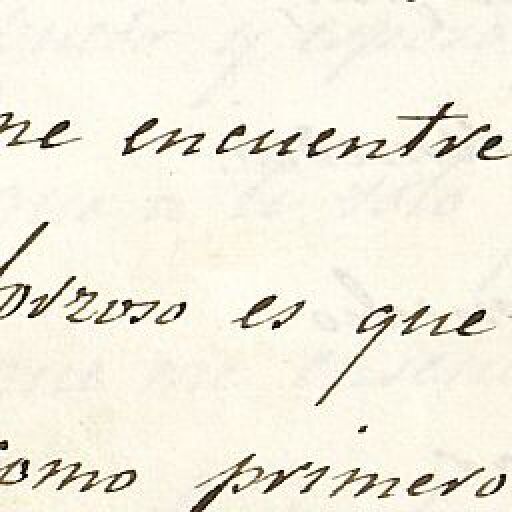 me encuentre
forzoso es que
como primero